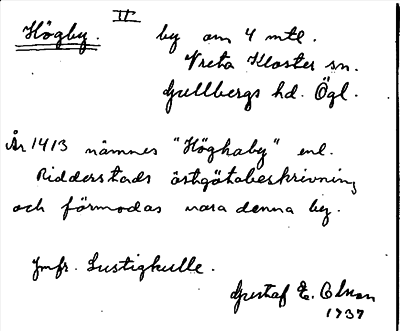 II
Högby. by om 4 mtl.
Vreta Kloster sn.
Gullbergs hd. Ögl.
År 1413 nämnes "Höghaby" enl.
Ridderstads östgötabeskrivning
och förmodas vara denna by.
Jmfr. Lustigkulle.
Gustaf E. Olson
1937